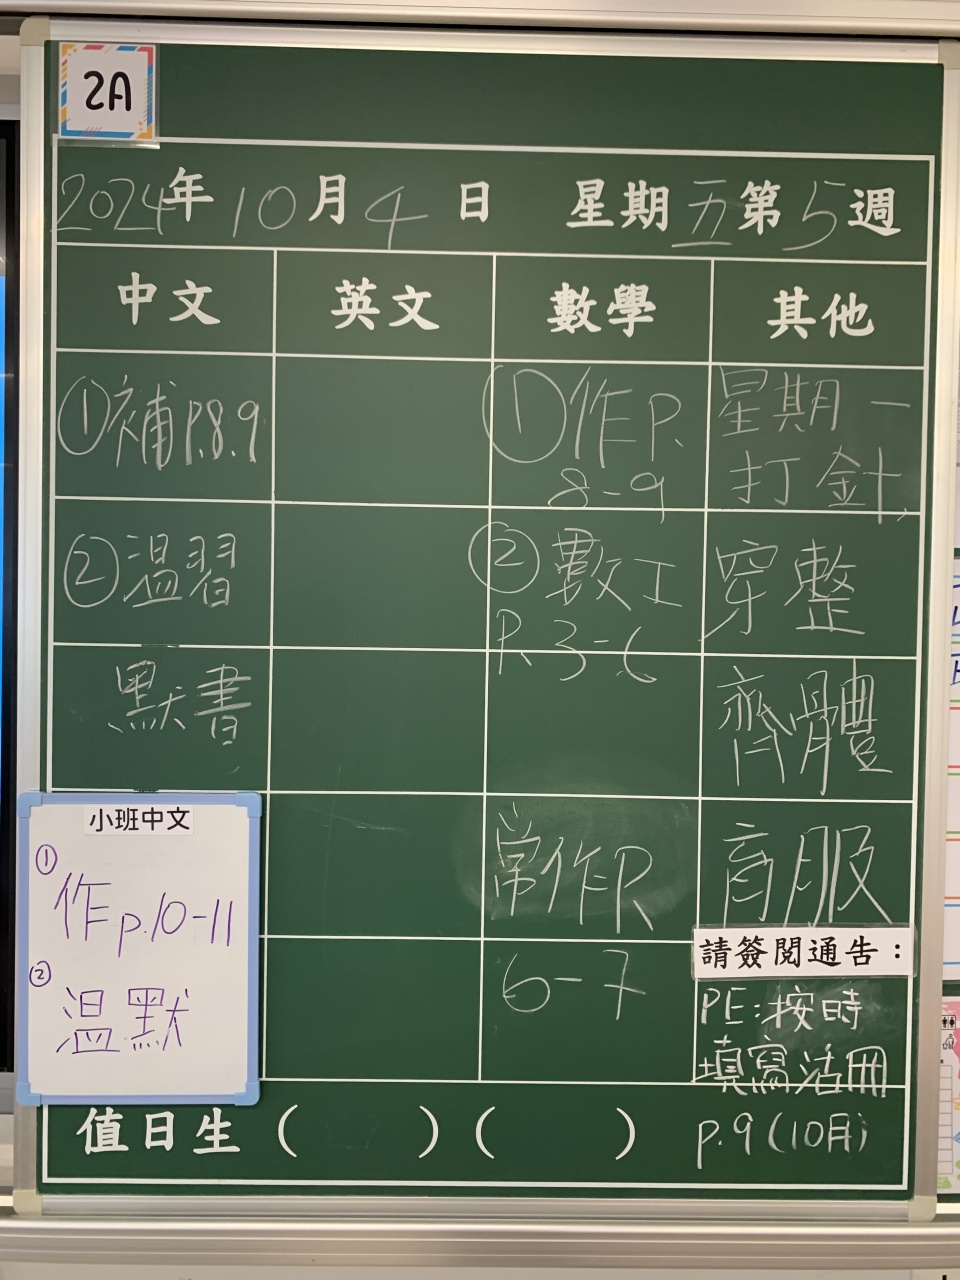 2A
2024年10月4日 星期五第5週
中文 英文 數學 其他
①補P.8.9
②溫習
默書
小班中文
①
作p.10-11
②
溫默
①作P.
8-9
②數工
P.3-6
常作P.
6-7
星期一
打針,
穿整
齊體
育服
請簽閱通告：
PE:按時
填寫活冊
p.9(10月)
值日生( )( )